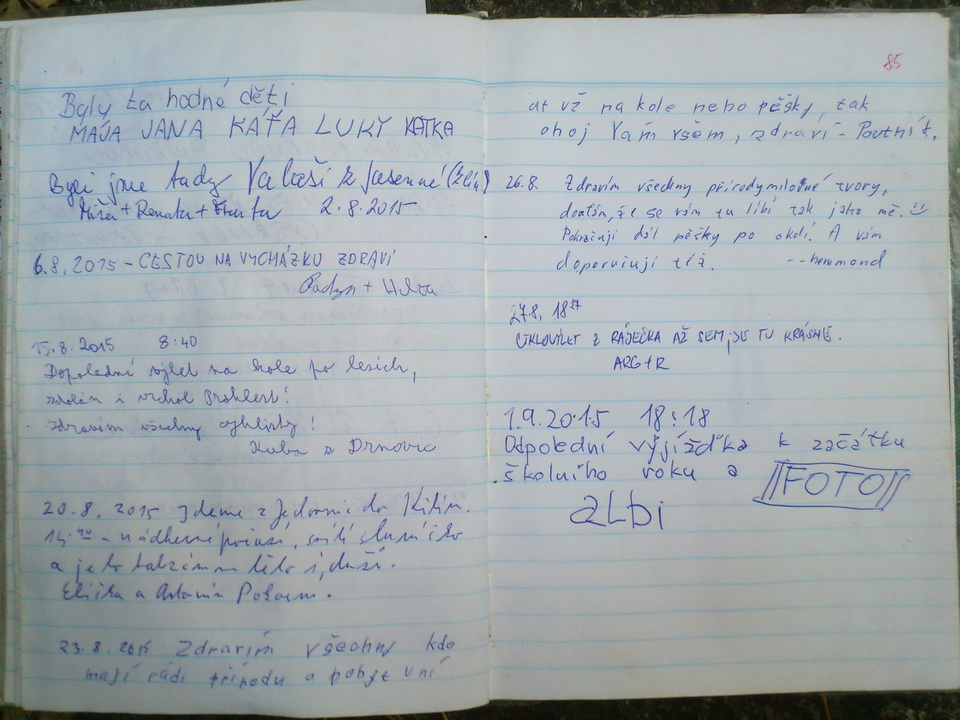 Byly ta hodné děti
MAJA JANA KÁŤA LUKY KATKA
Byli jsme tudy Valaši z Jasenné (Zlín)
Míša + Renata +
2.8.2015
6.8.2015 - CESTOU NA VYCHÁZKU ZDRAVÍ
15.8.2015 8:40
Dopolední výlet na kole po lesích,
zdolán i vrchol Prohlest!
Zdravím všechny cyklisty!
Kuba z Drnovic
20.8.2015 Jdeme z Jedovnic do Kiřin.
14.40 - nádherné počasí, svítí sluníčko
a je to balzám na tělo i duši.
Eliška a Antonín
23.8.2015 Zdravím všechny kdo
mají rádi přírodu a pohyb v ní
85
ať už na kole nebo pěšky, tak
ahoj Vám všem, zdraví - Poutník.
26.8. Zdravím všechny přírodymilovné tvory,
doufám, že se vám tu líbí tak jako mě. :)
Pokračuji dál pěšky po okolí. A vám
doporučuji též. -- hammond
27.8. 18 27
CYKLOVÝLET Z RÁJEČKA AŽ SEM, JE TU KRÁSNĚ.
ARG+R
1.9.2015 18:18
Odpolední vyjížďka k začátku
školního roku a FOTO
aLbi